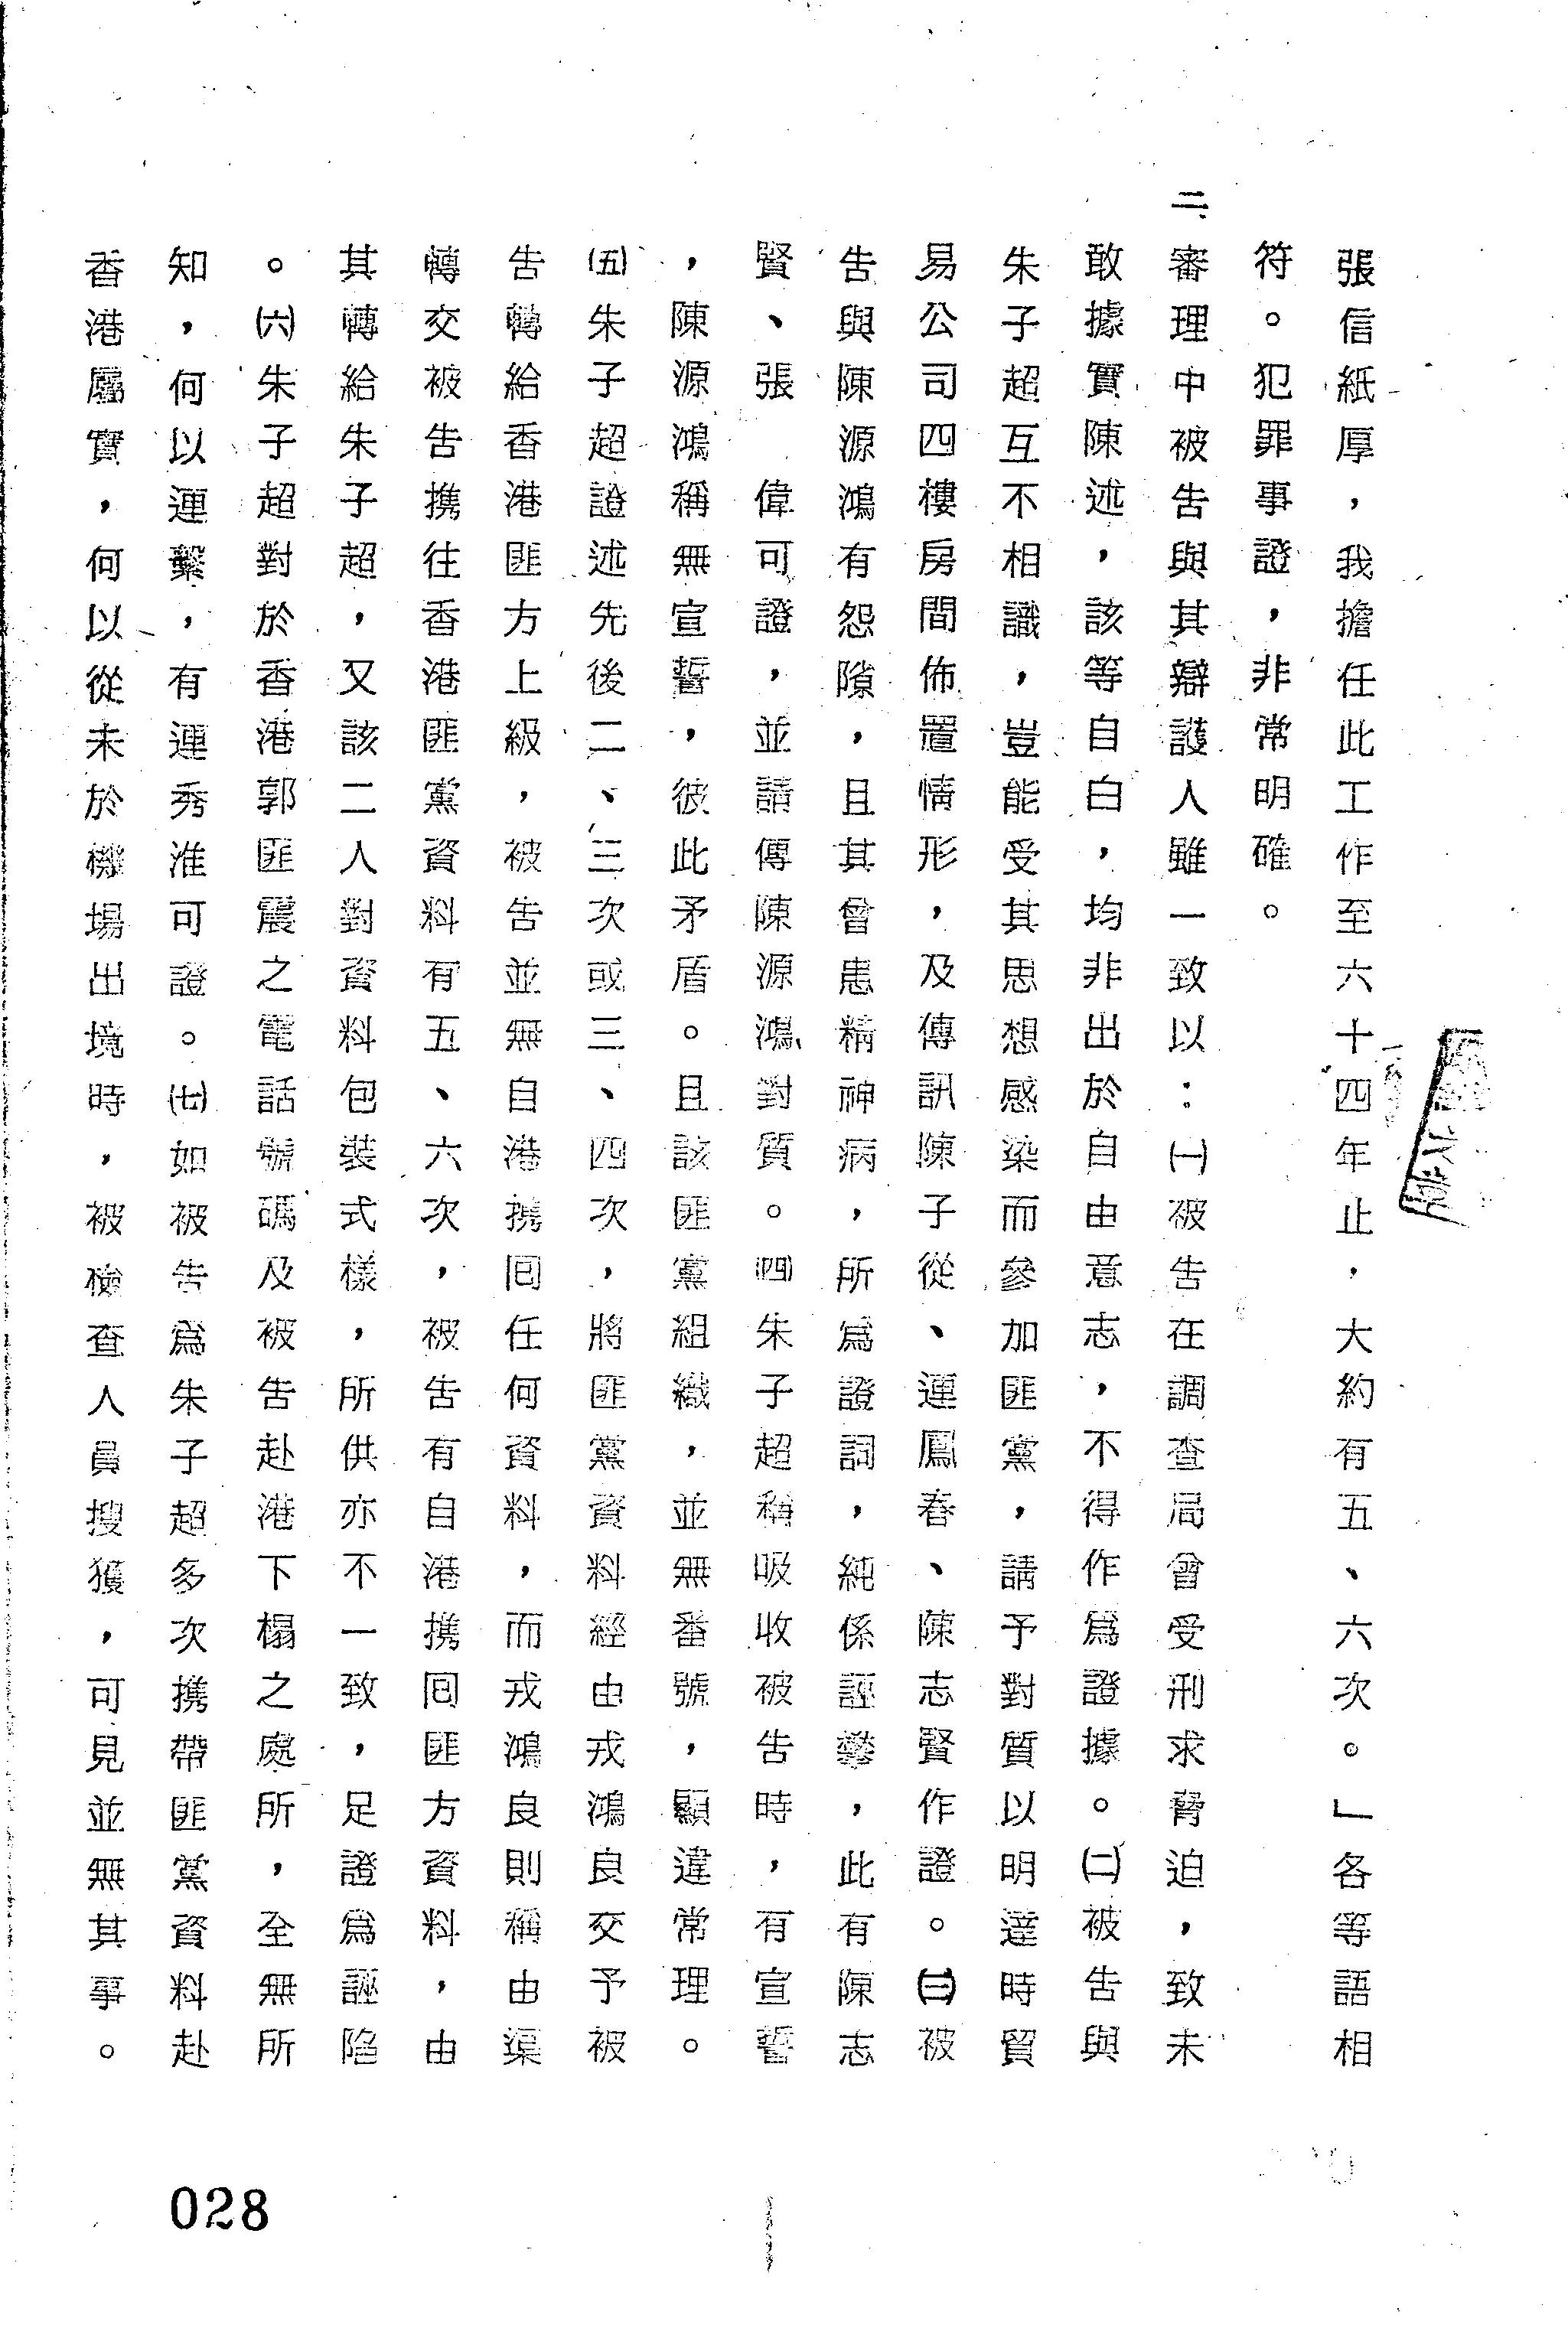 張信紙厚，我擔任此工作至六十四年止，大約有五、六次。」各等語相
符。犯罪事證，非常明確。
二、審理中被告與其辯護人雖一致以：㈠被告在調查局曾受刑求脅迫，致未
敢據實陳述，該等自白，均非出於自由意志，不得作為證據。㈡被告與
朱子超互不相識，豈能受其思想感染而參加匪黨，請予對質以明達時貿
易公司四樓房間佈置情形，及傳訊陳子從、連鳳春、陳志賢作證。㈢被
告與陳源鴻有怨隙，且其曾患精神病，所為證詞，純係誣攀，此有陳志
賢、張　偉可證，並請傳陳源鴻對質。㈣朱子超稱吸收被告時，有宣誓
，陳源鴻稱無宣誓，彼此矛盾。且該匪黨組織，並無番號，顯違常理。
㈤朱子超證述先後二、三次或三、四次，將匪黨資料經由戎鴻良交予被
告轉給香港匪方上級，被告並無自港携回任何資料，而戎鴻良則稱由渠
轉交被告携往香港匪黨資料有五、六次，被告有自港携回匪方資料，由
其轉給朱子超，又該二人對資料包裝式樣，所供亦不一致，足證為誣陷
。㈥朱子超對於香港郭匪震之電話號碼及被告赴港下榻之處所，全無所
知，何以連繫，有連秀准可證。㈦如被告為朱子超多次携帶匪黨資料赴
香港屬實，何以從未於機場出境時，被檢查人員搜獲，可見並無其事。
028